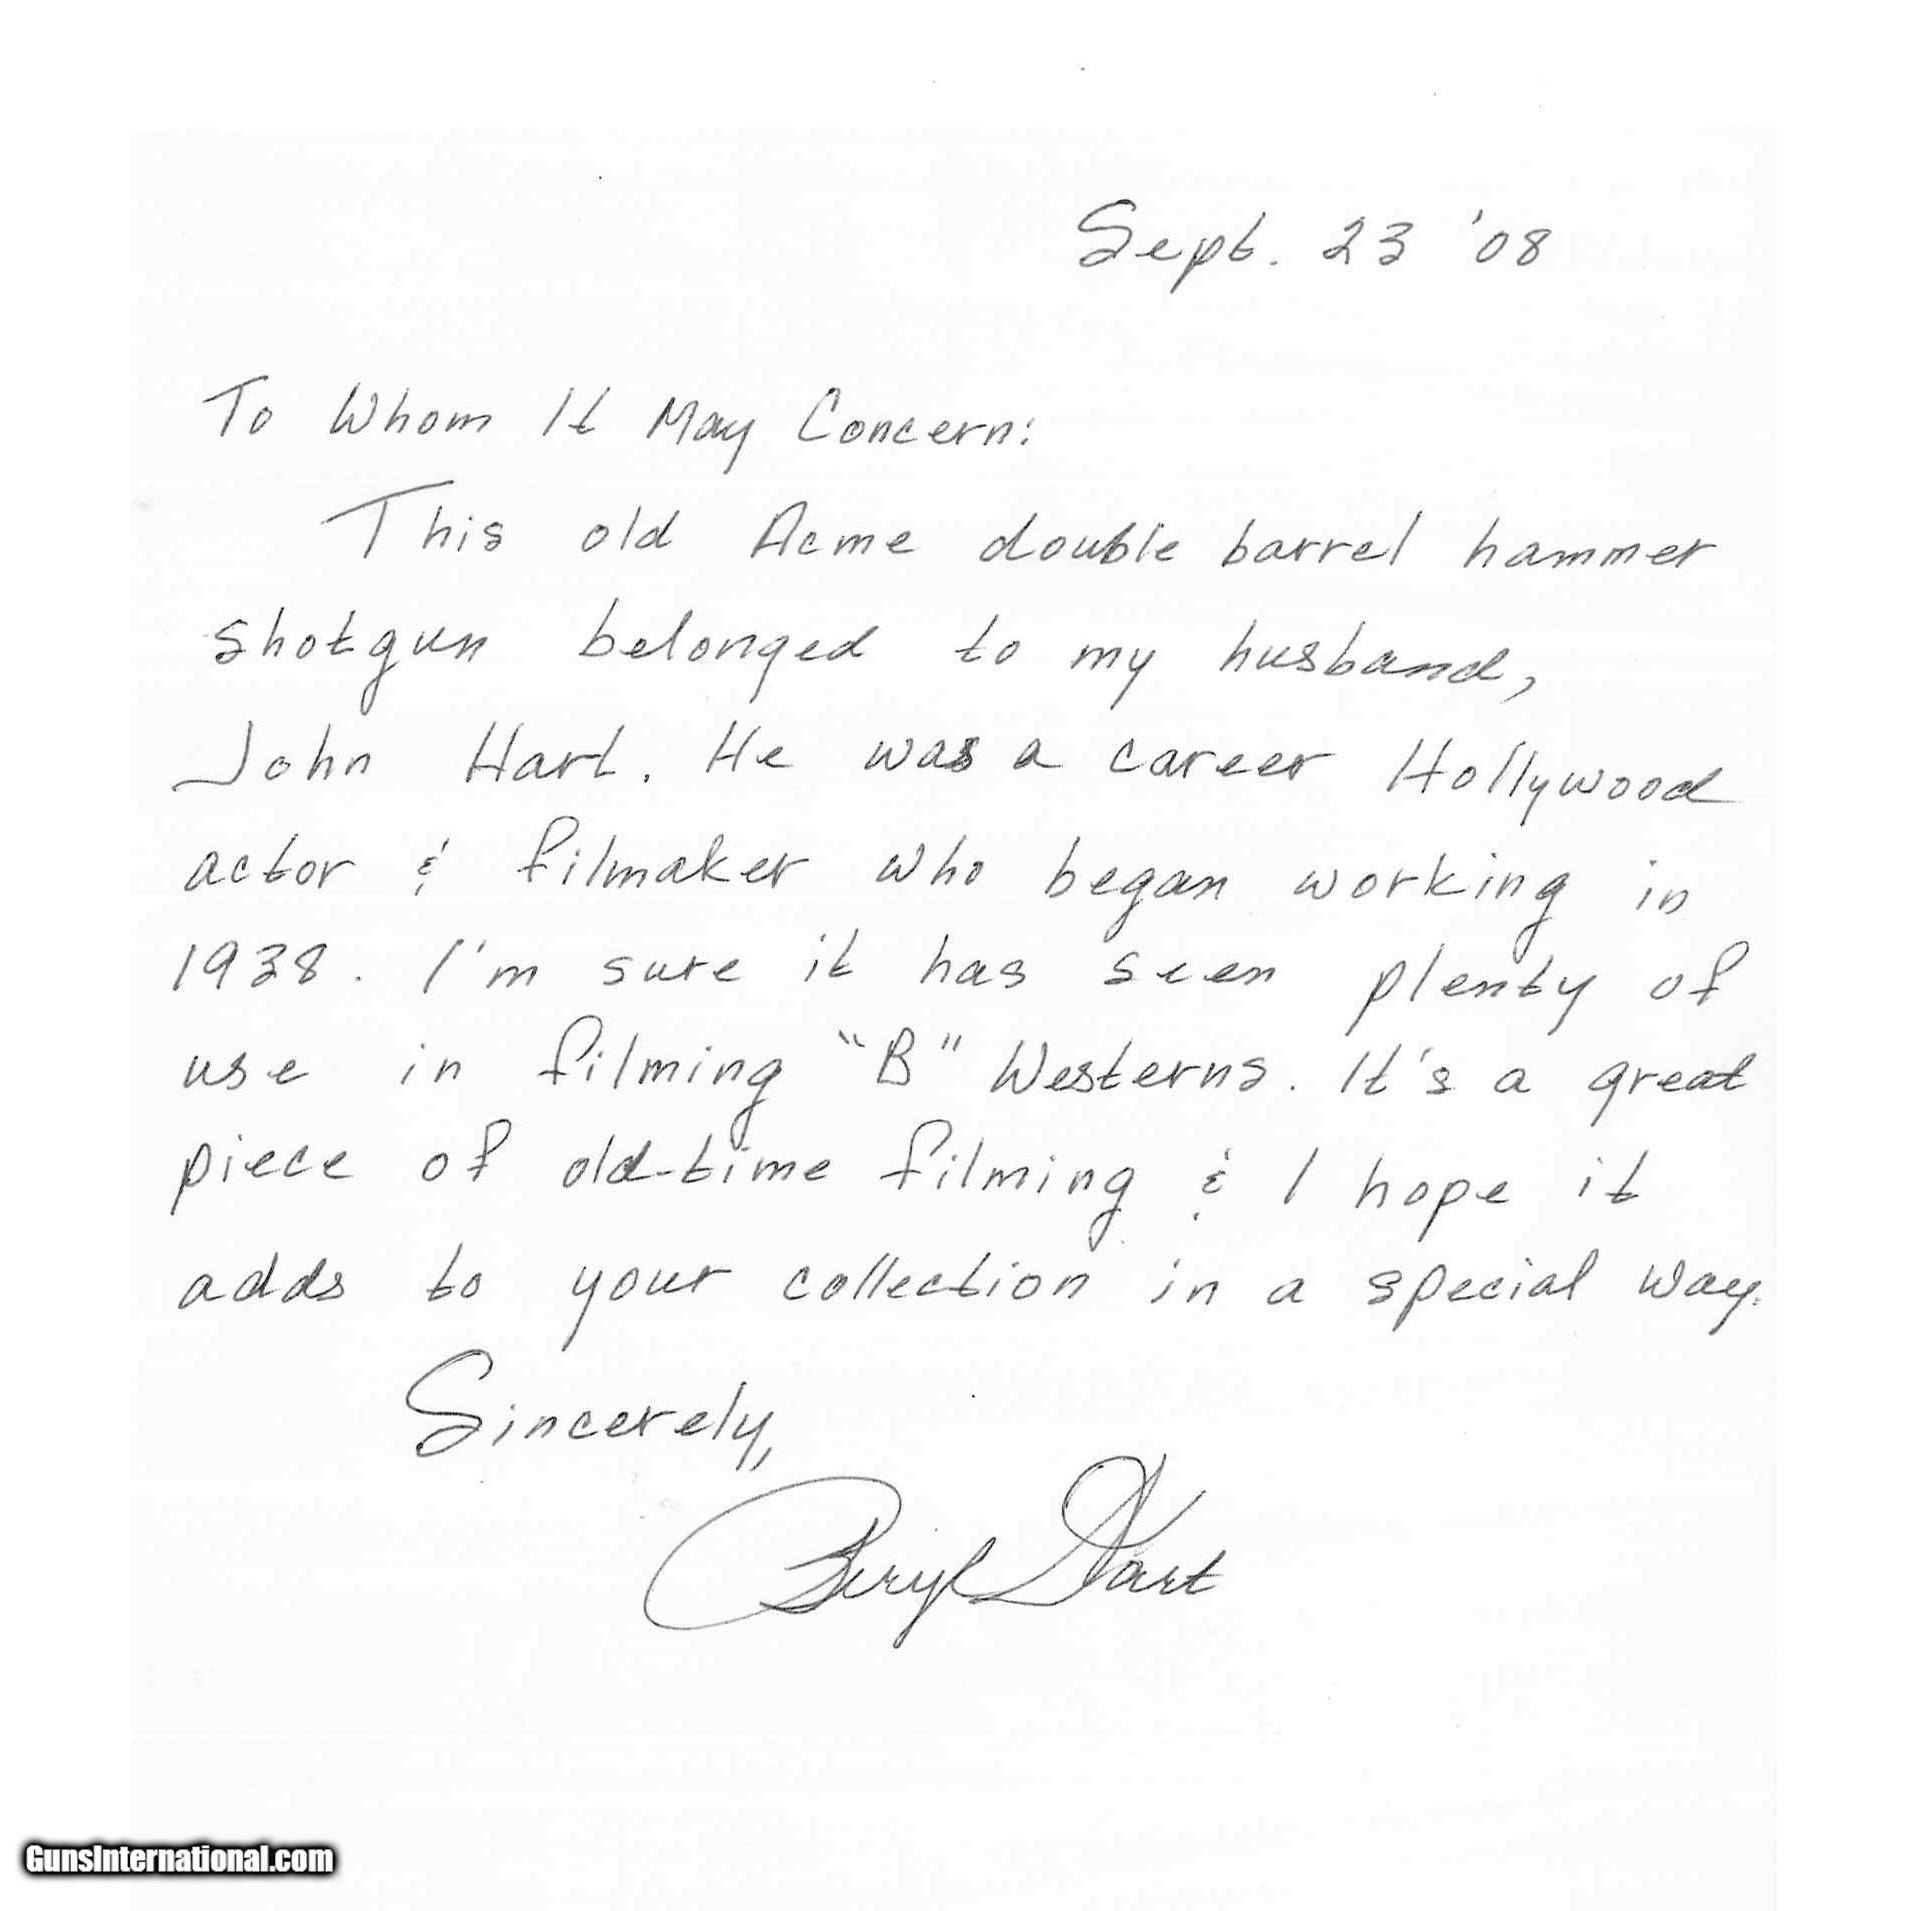 Sept. 23 '08
To Whom It May Concern:
This old Acme double barrel hammer
shotgun belonged to my husband,
John Hart. He was a career Hollywood
actor & filmaker who began working in
1938. I'm sure it has seen plenty of
use in filming "B" Westerns. It's a great
piece of old-time filming & I hope it
adds to your collection in a special way.
Sincerely,
Beryl Hart
GunsInternational.com